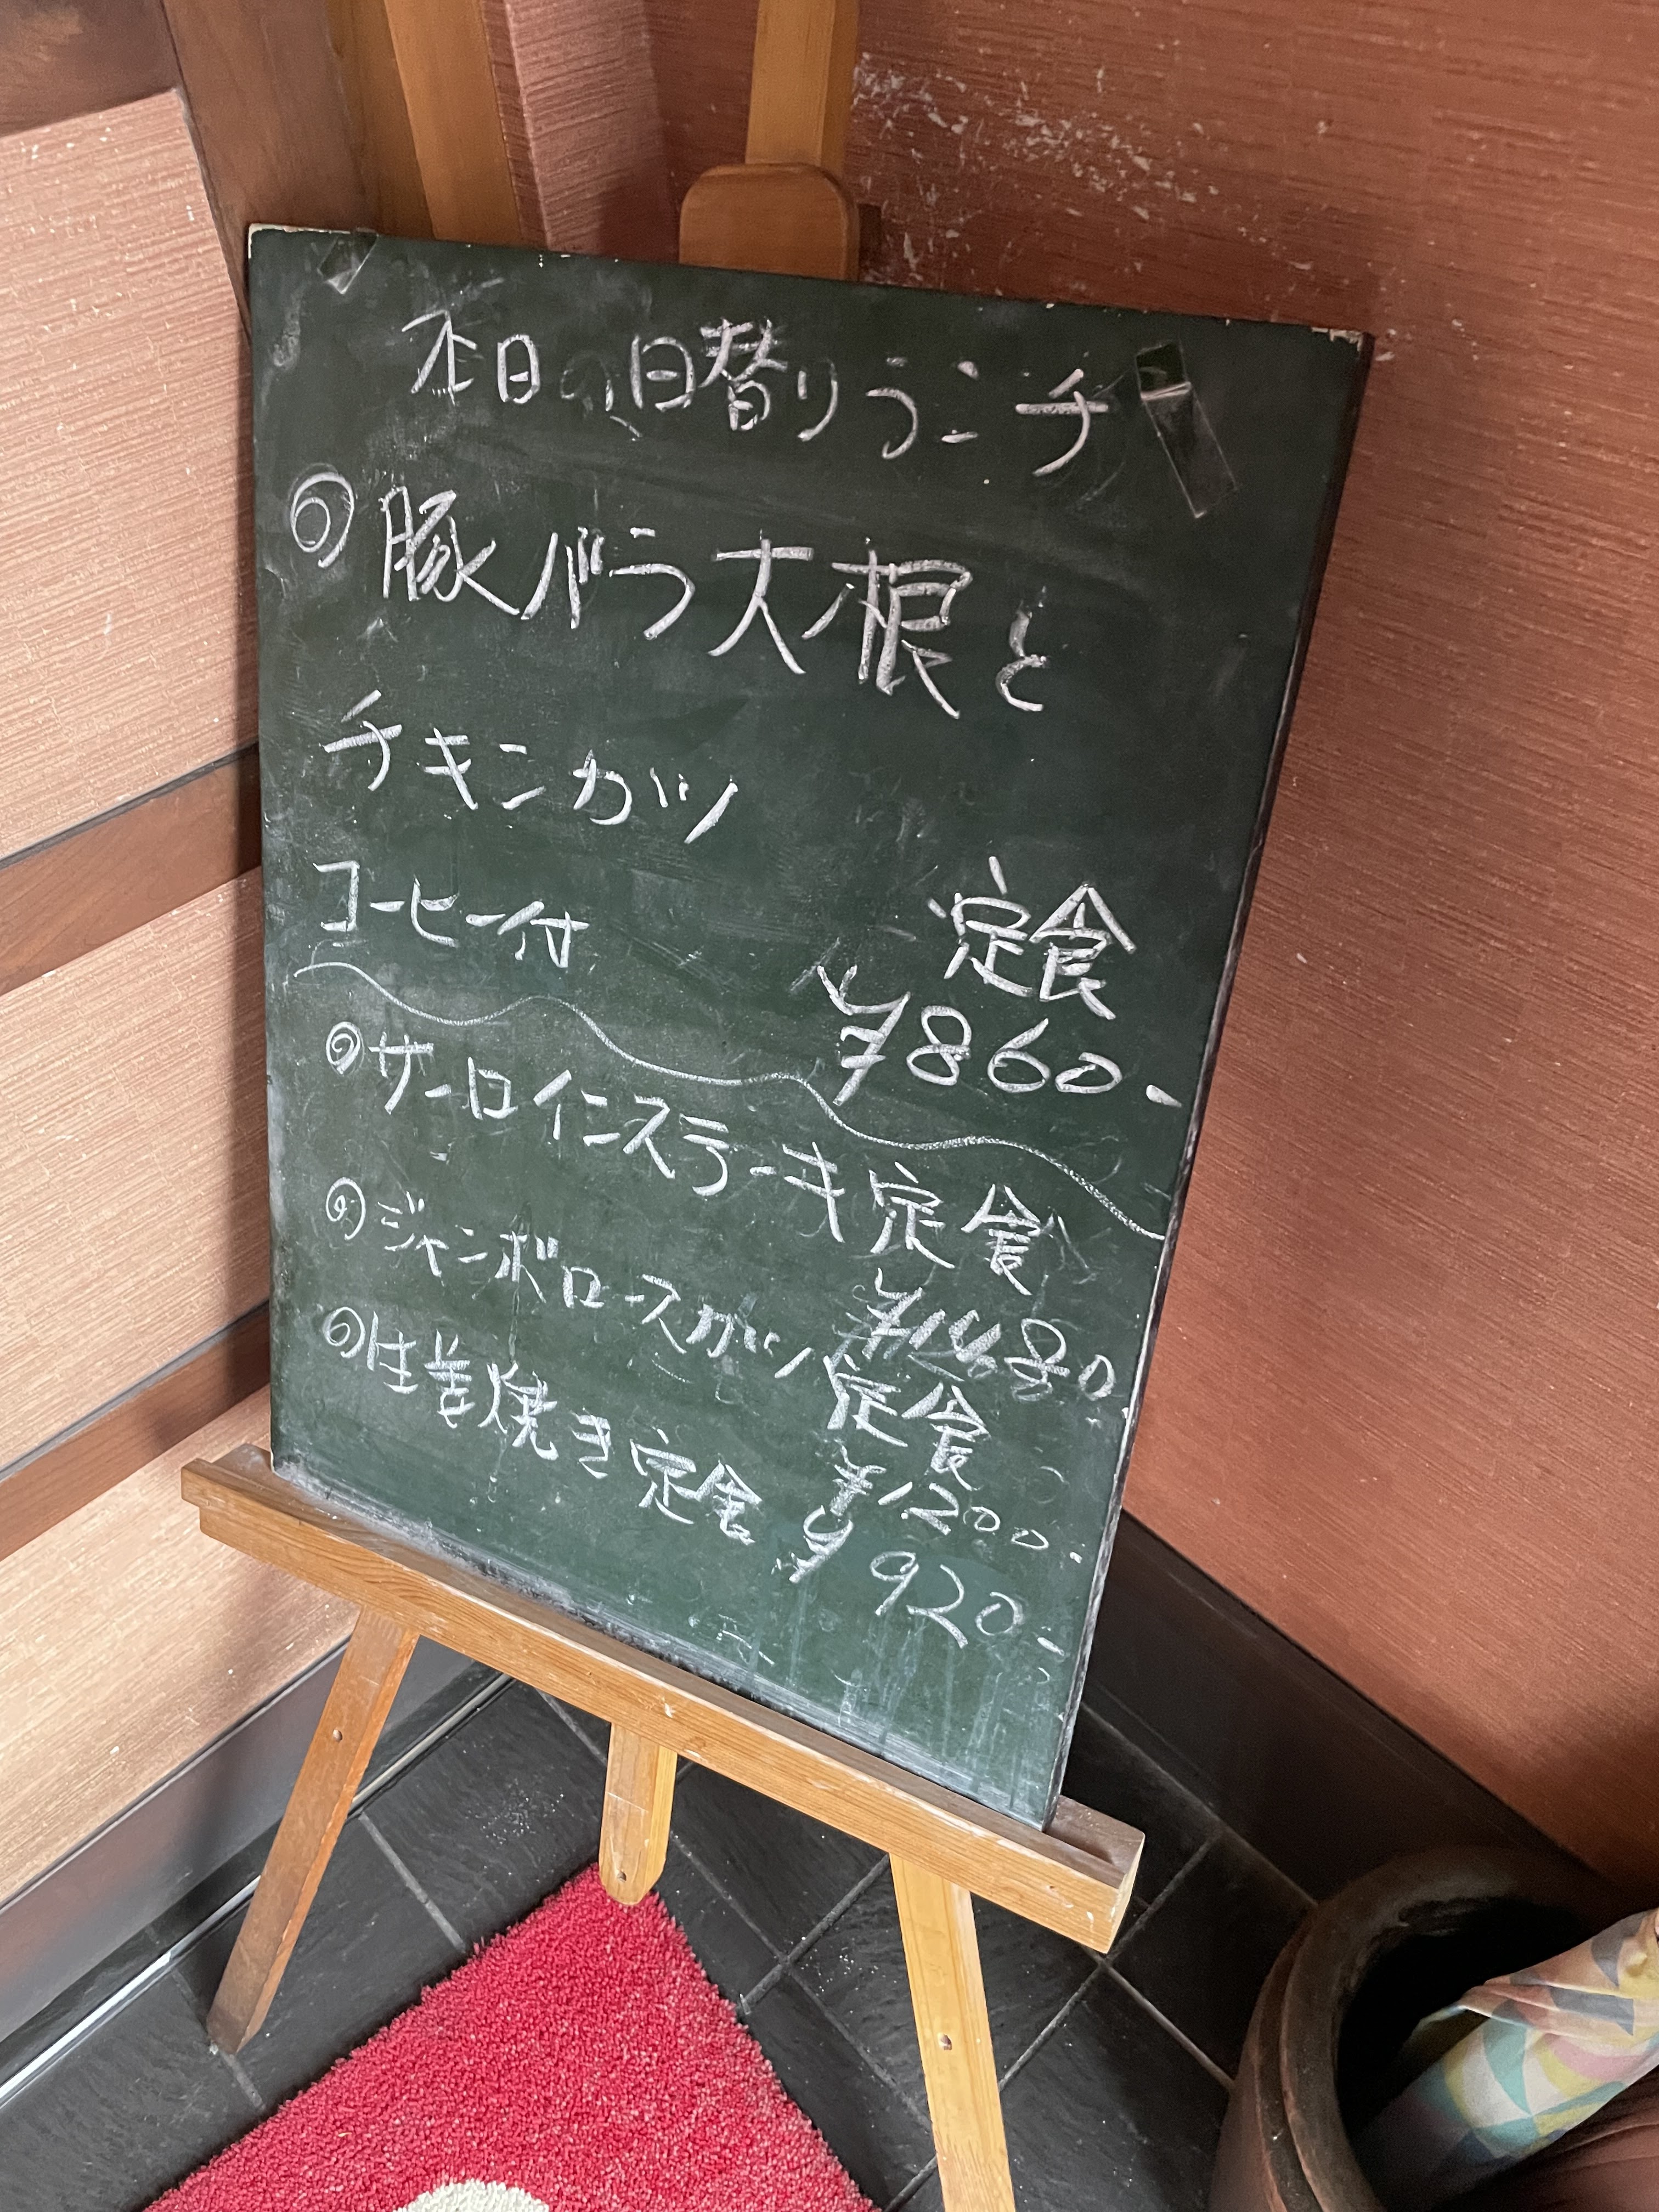 本日の日替りランチ
◎豚バラ大根と
チキンカツ
定食
コーヒー付
¥860-
◎サーロインステーキ定食
¥1480-
◎ジャンボロースカツ定食
¥1200-
◎生姜焼き定食 ¥920-